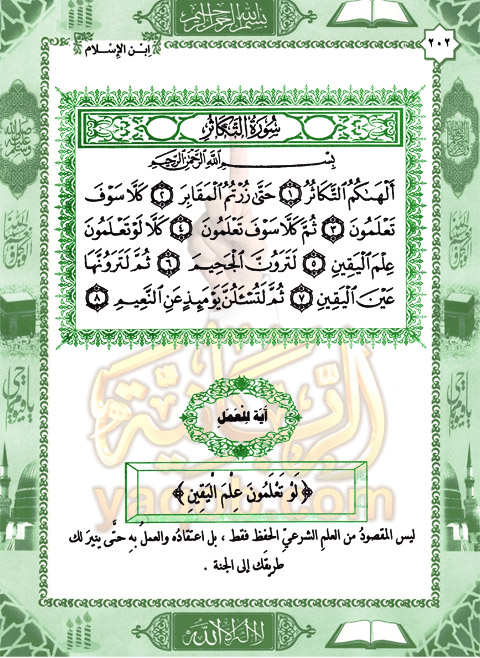 بسم الله الرحمن الرحيم
٢٠٢
ابن الإسلام
سُورَةُ التَّكَاثُرِ
بِسْمِ اللَّهِ الرَّحْمَٰنِ الرَّحِيمِ
أَلْهَىٰكُمُ ٱلتَّكَاثُرُ ١ حَتَّىٰ زُرْتُمُ ٱلْمَقَابِرَ ٢ كَلَّا سَوْفَ
تَعْلَمُونَ ٣ ثُمَّ كَلَّا سَوْفَ تَعْلَمُونَ ٤ كَلَّا لَوْ تَعْلَمُونَ
عِلْمَ ٱلْيَقِينِ ٥ لَتَرَوُنَّ ٱلْجَحِيمَ ٦ ثُمَّ لَتَرَوُنَّهَا
عَيْنَ ٱلْيَقِينِ ٧ ثُمَّ لَتُسْـَٔلُنَّ يَوْمَئِذٍ عَنِ ٱلنَّعِيمِ ٨
آيَة لِلْعَمَلِ
﴿لَوْ تَعْلَمُونَ عِلْمَ الْيَقِينِ﴾
ليس المقصودُ من العلمِ الشرعيِّ الحفظ فقط ، بل اعتقادُه والعملُ بهِ حتَّى ينيرَ لك
طريقَك إلى الجنة .
لا إله إلا الله